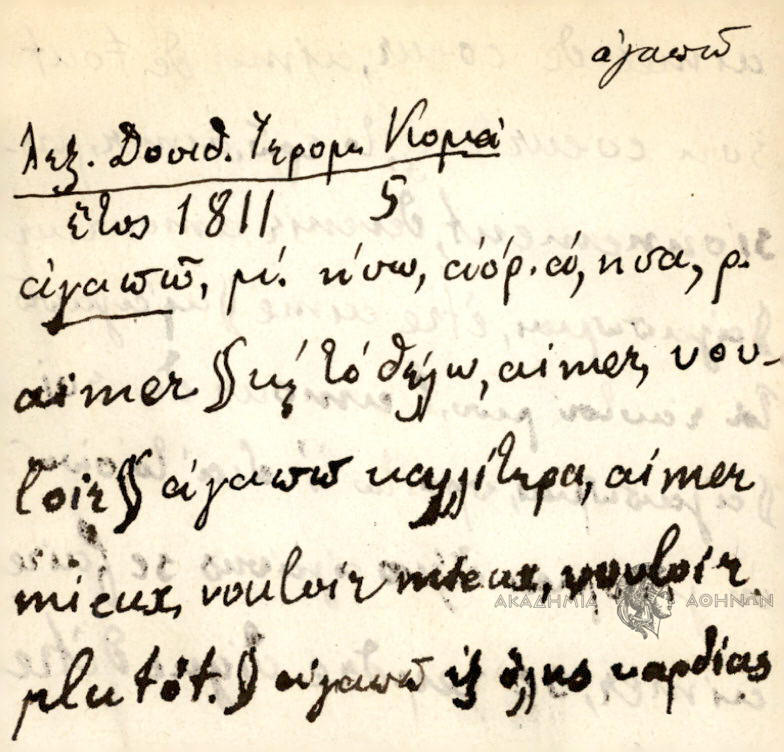 ἀγαπῶ
Λεξ. Δαυιδ. Ἱερομ. Κομᾶ
ἔτος 1811 5
ἀγαπῶ, μέ. ήσω, ἀόρ. ά, ησα, ρ.
aimer § κ̀ τὸ θέλω, aimer, vou-
loir § ἀγαπῶ καλλίτερα, aimer
mieux, vouloir mieux, vouloir
plutôt. § ἀγαπῶ ἐξ ὅλης καρδίας
ΑΚΑΔΗΜΙΑ ΑΘΗΝΩΝ